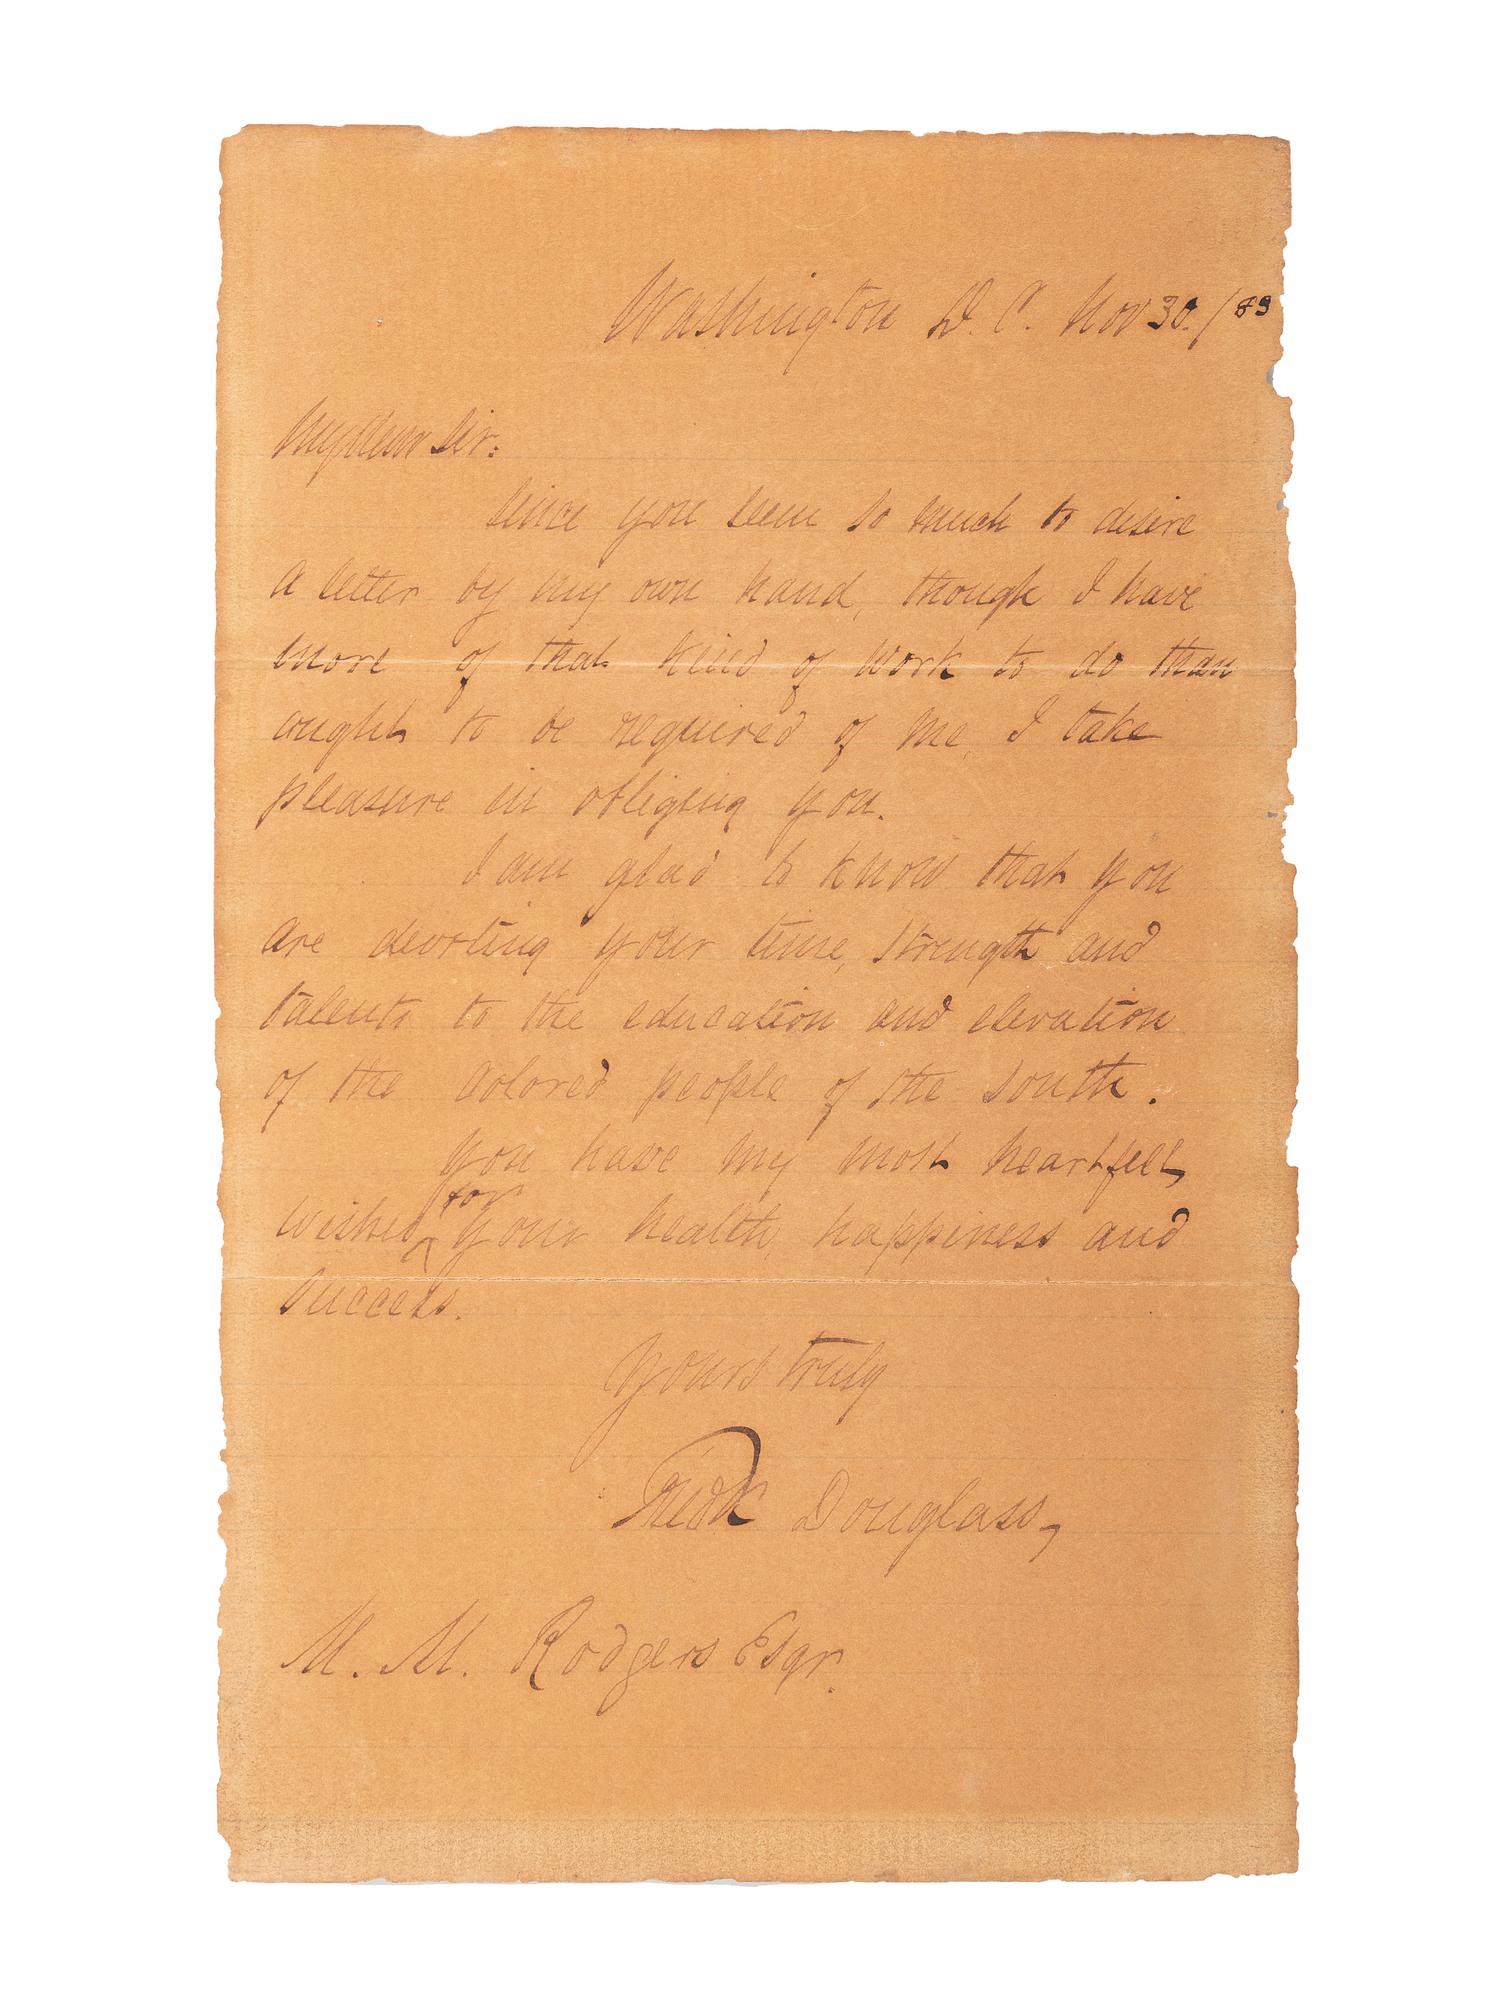 Washington D. C. Nov 30. / 83
My dear Sir:
Since you seem so much to desire
a letter by my own hand, though I have
more of that kind of work to do than
ought to be required of me, I take
pleasure in obliging you.
I am glad to know that you
are devoting your time, strength and
talents to the education and elevation
of the colored people of the South.
You have my most heartfelt
wishes ^for your health, happiness and
success.
Yours truly
Fredk Douglass,
M. M. Rodgers Esqr.